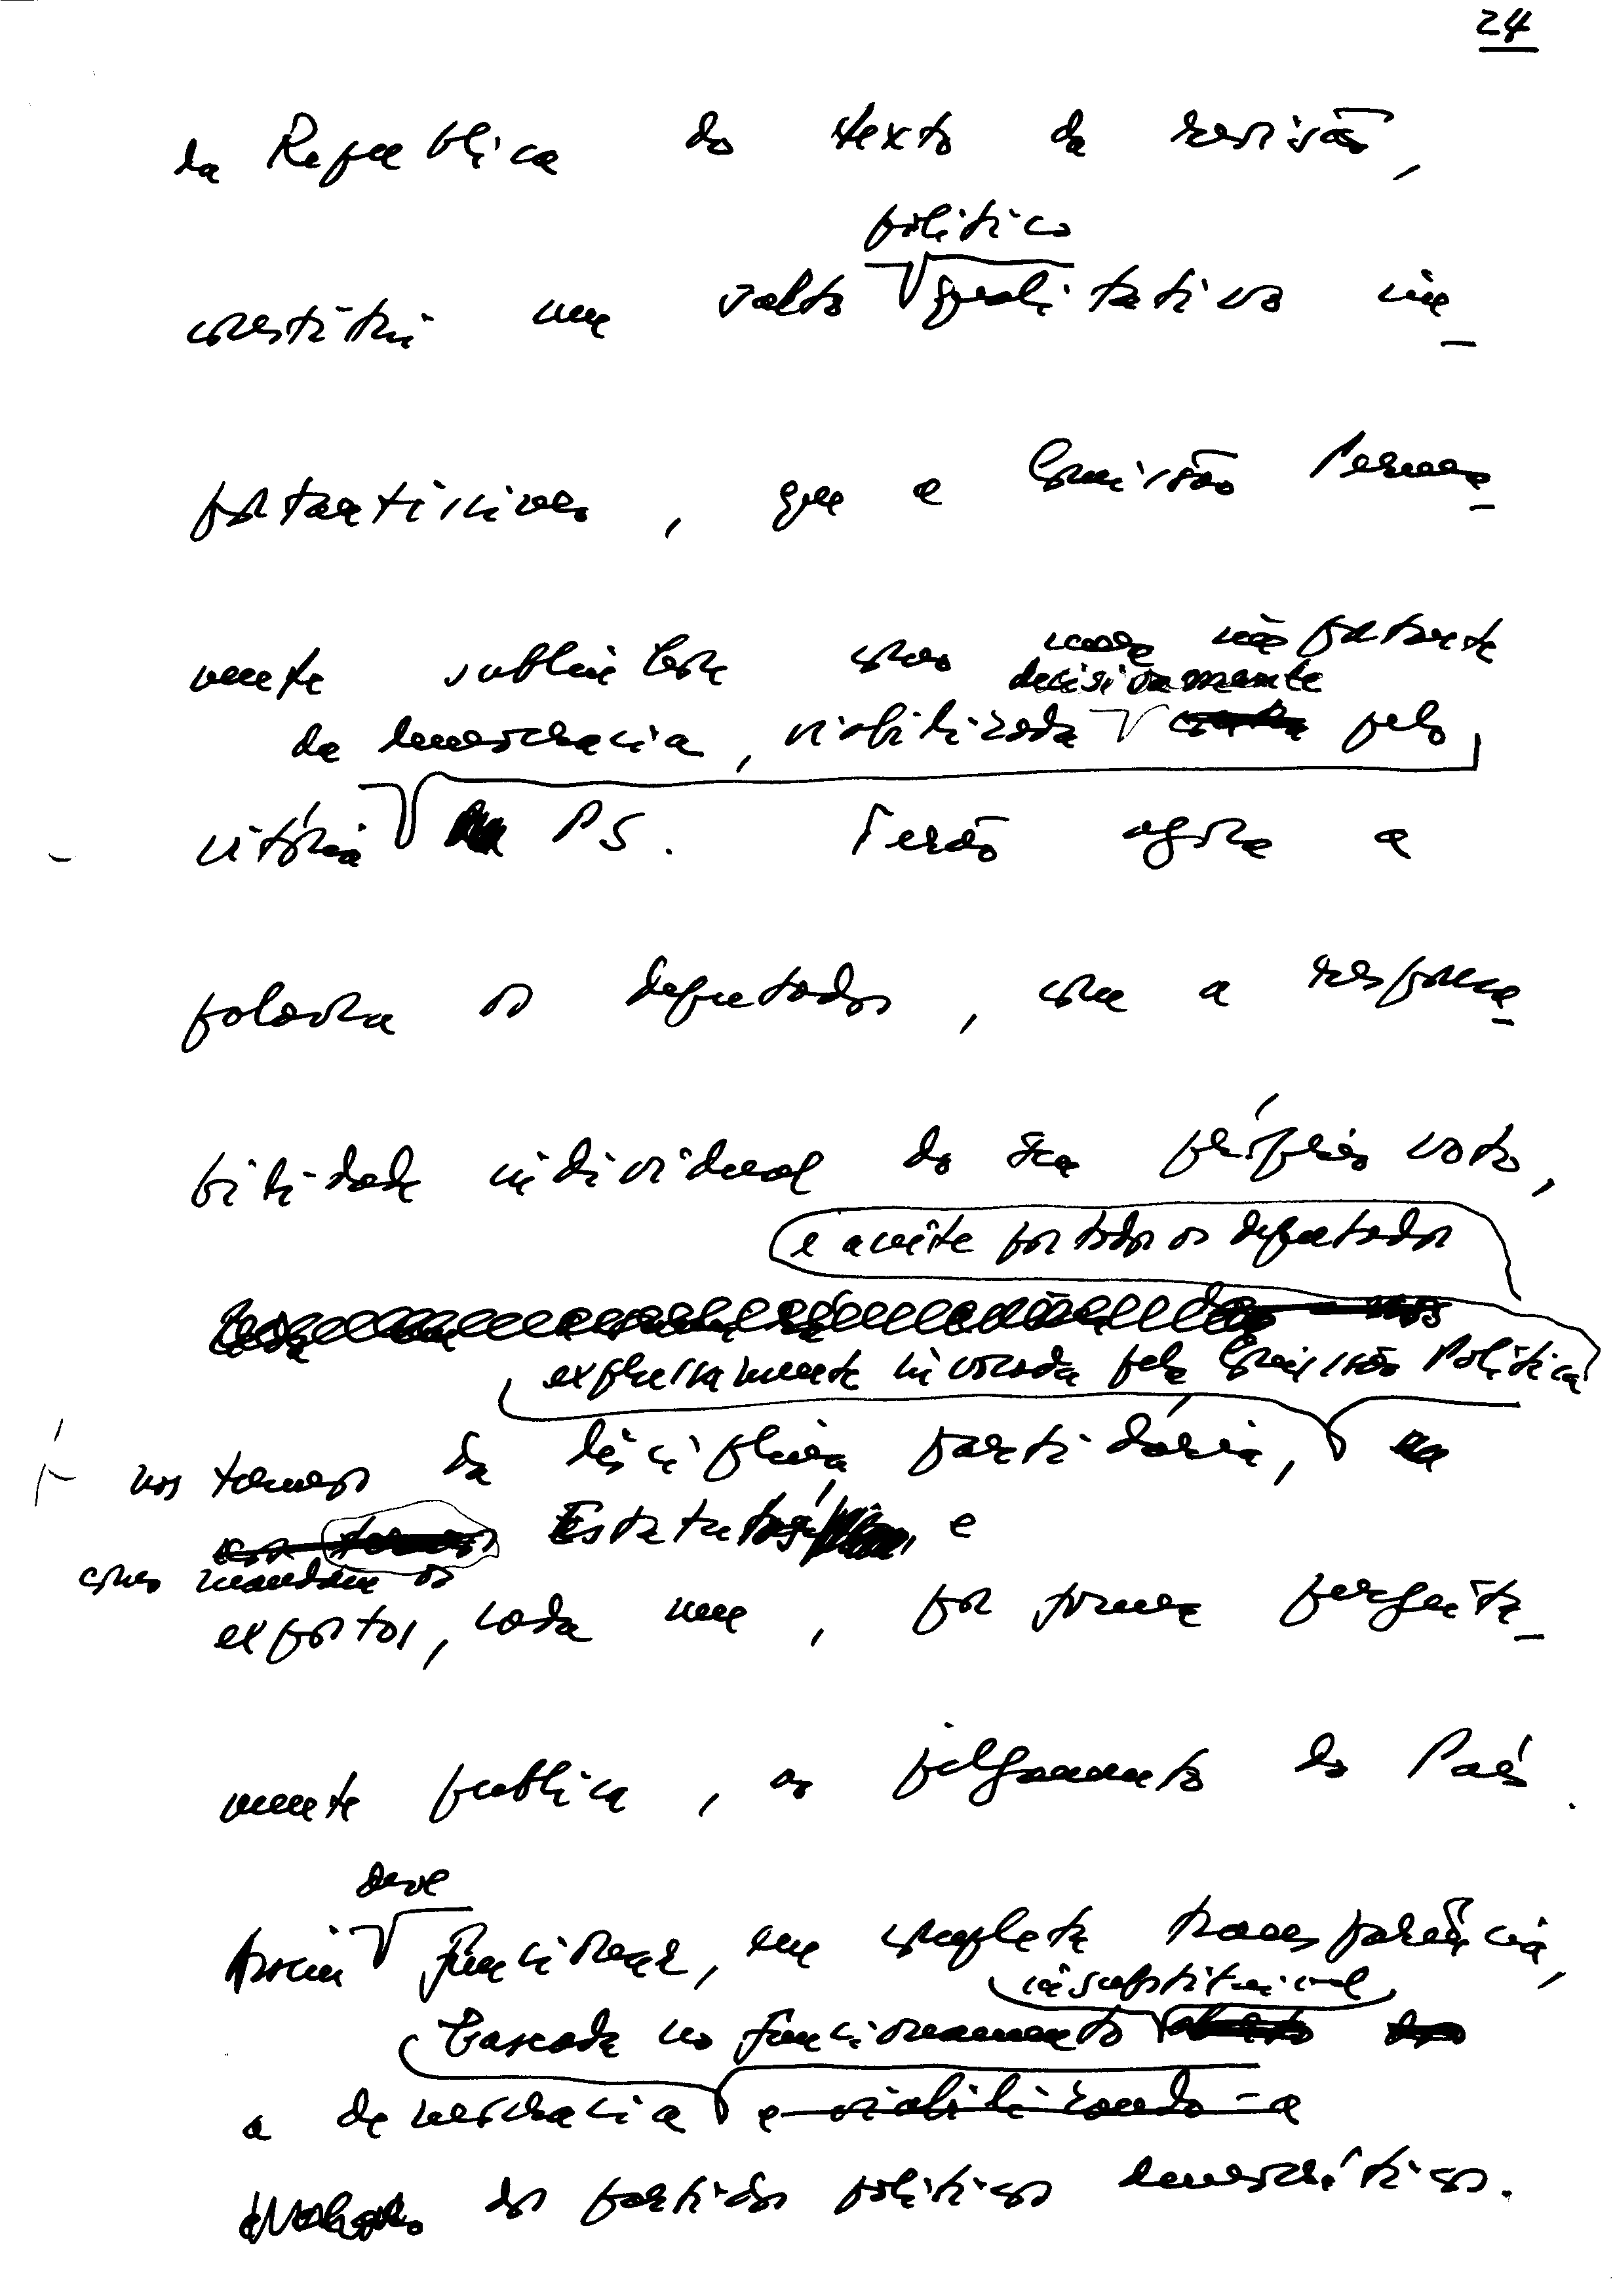 24
da República do texto da revisão,
político
constitui um salto qualitativo im-
portantíssimo, que a Comissão Perma-
nente sublinha como uma importante
decisivamente
da democracia, viabilizada pelo
vitória PS. Terão agora a
palavra os deputados, com a responsa-
bilidade individual do seu próprio voto,
e aceite por todos os deputados
expressamente invocada pela Comissão Política
nos termos da disciplina partidária,
Estatutos, e
como mandam os
expostos, cada um, por forma perfeita-
mente pública, ao julgamento do País.
deve
Assim funcionar, em completa transparência,
insubstituível
baseada no funcionamento
a democracia e viabilizando-a
dos partidos políticos democráticos.